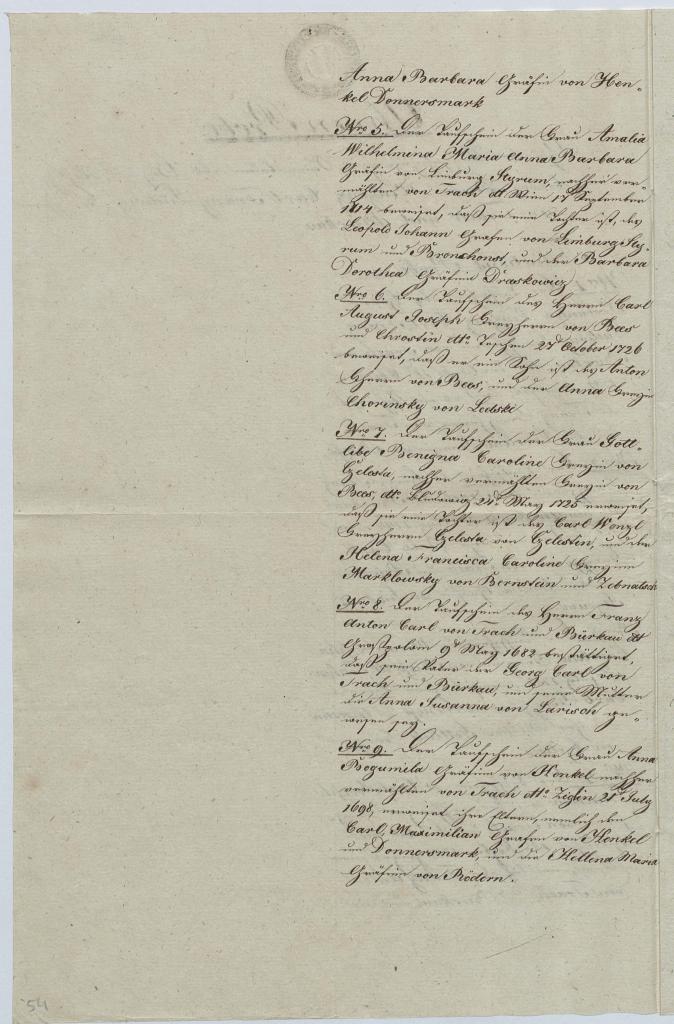 Anna Barbara Gräfin von Hen-
kel Donnersmark
Nro 5. Der Taufschein der Frau Amalia
Wilhelmina Maria Anna Barbara
Gräfin von Limburg Styrum, nachher ver-
mählten von Trach dtt Wien 17t September
1714 beweiset, daß sie eine Tochter ist, des
Leopold Johann Grafen von Limburg Sty-
rum und Bronchonst, und der Barbara
Dorothea Gräfinn Draskowicz
Nro 6. Der Taufschein des Herrn Carl
August Joseph Freyherrn von Bees
und Chrostin dtto Teschen 27t October 1726
beweiset, daß er ein Sohn ist des Anton
Fherrn von Bees, und der Anna Freyin
Chorinsky von Ledski
Nro 7. Der Taufschein der Frau Gott-
libe Benigna Caroline Freyin von
Czelesta, nachher vermählten Freyin von
Bees, dtto Bludowiz 24t May 1725 erweiset,
daß sie eine Tochter ist des Carl Wenzl
Freyherrn Czelesta von Czelestin, und der
Helena Francisca Caroline Freyinn
Marklowsky von Bernstein und Zebnatsch
Nro 8. Der Taufschein des Herrn Franz
Anton Carl von Trach und Bürkau dtt
Großpolom 9t May 1682 bestättiget,
daß sein Vater der Georg Carl von
Trach und Bürkau, und seine Mutter
die Anna Susanna von Larisch ge-
wesen sey.
Nro 9. Der Taufschein der Frau Anna
Bogumila Gräfinn von Henkel nachher
vermählten von Trach dtto Ziglin 21t July
1698, erweiset ihre Eltern, nemlich den
Carl Maximilian Grafen von Henkel
und Donnersmark, und die Hellena Maria
Gräfinn von Rödern.
54